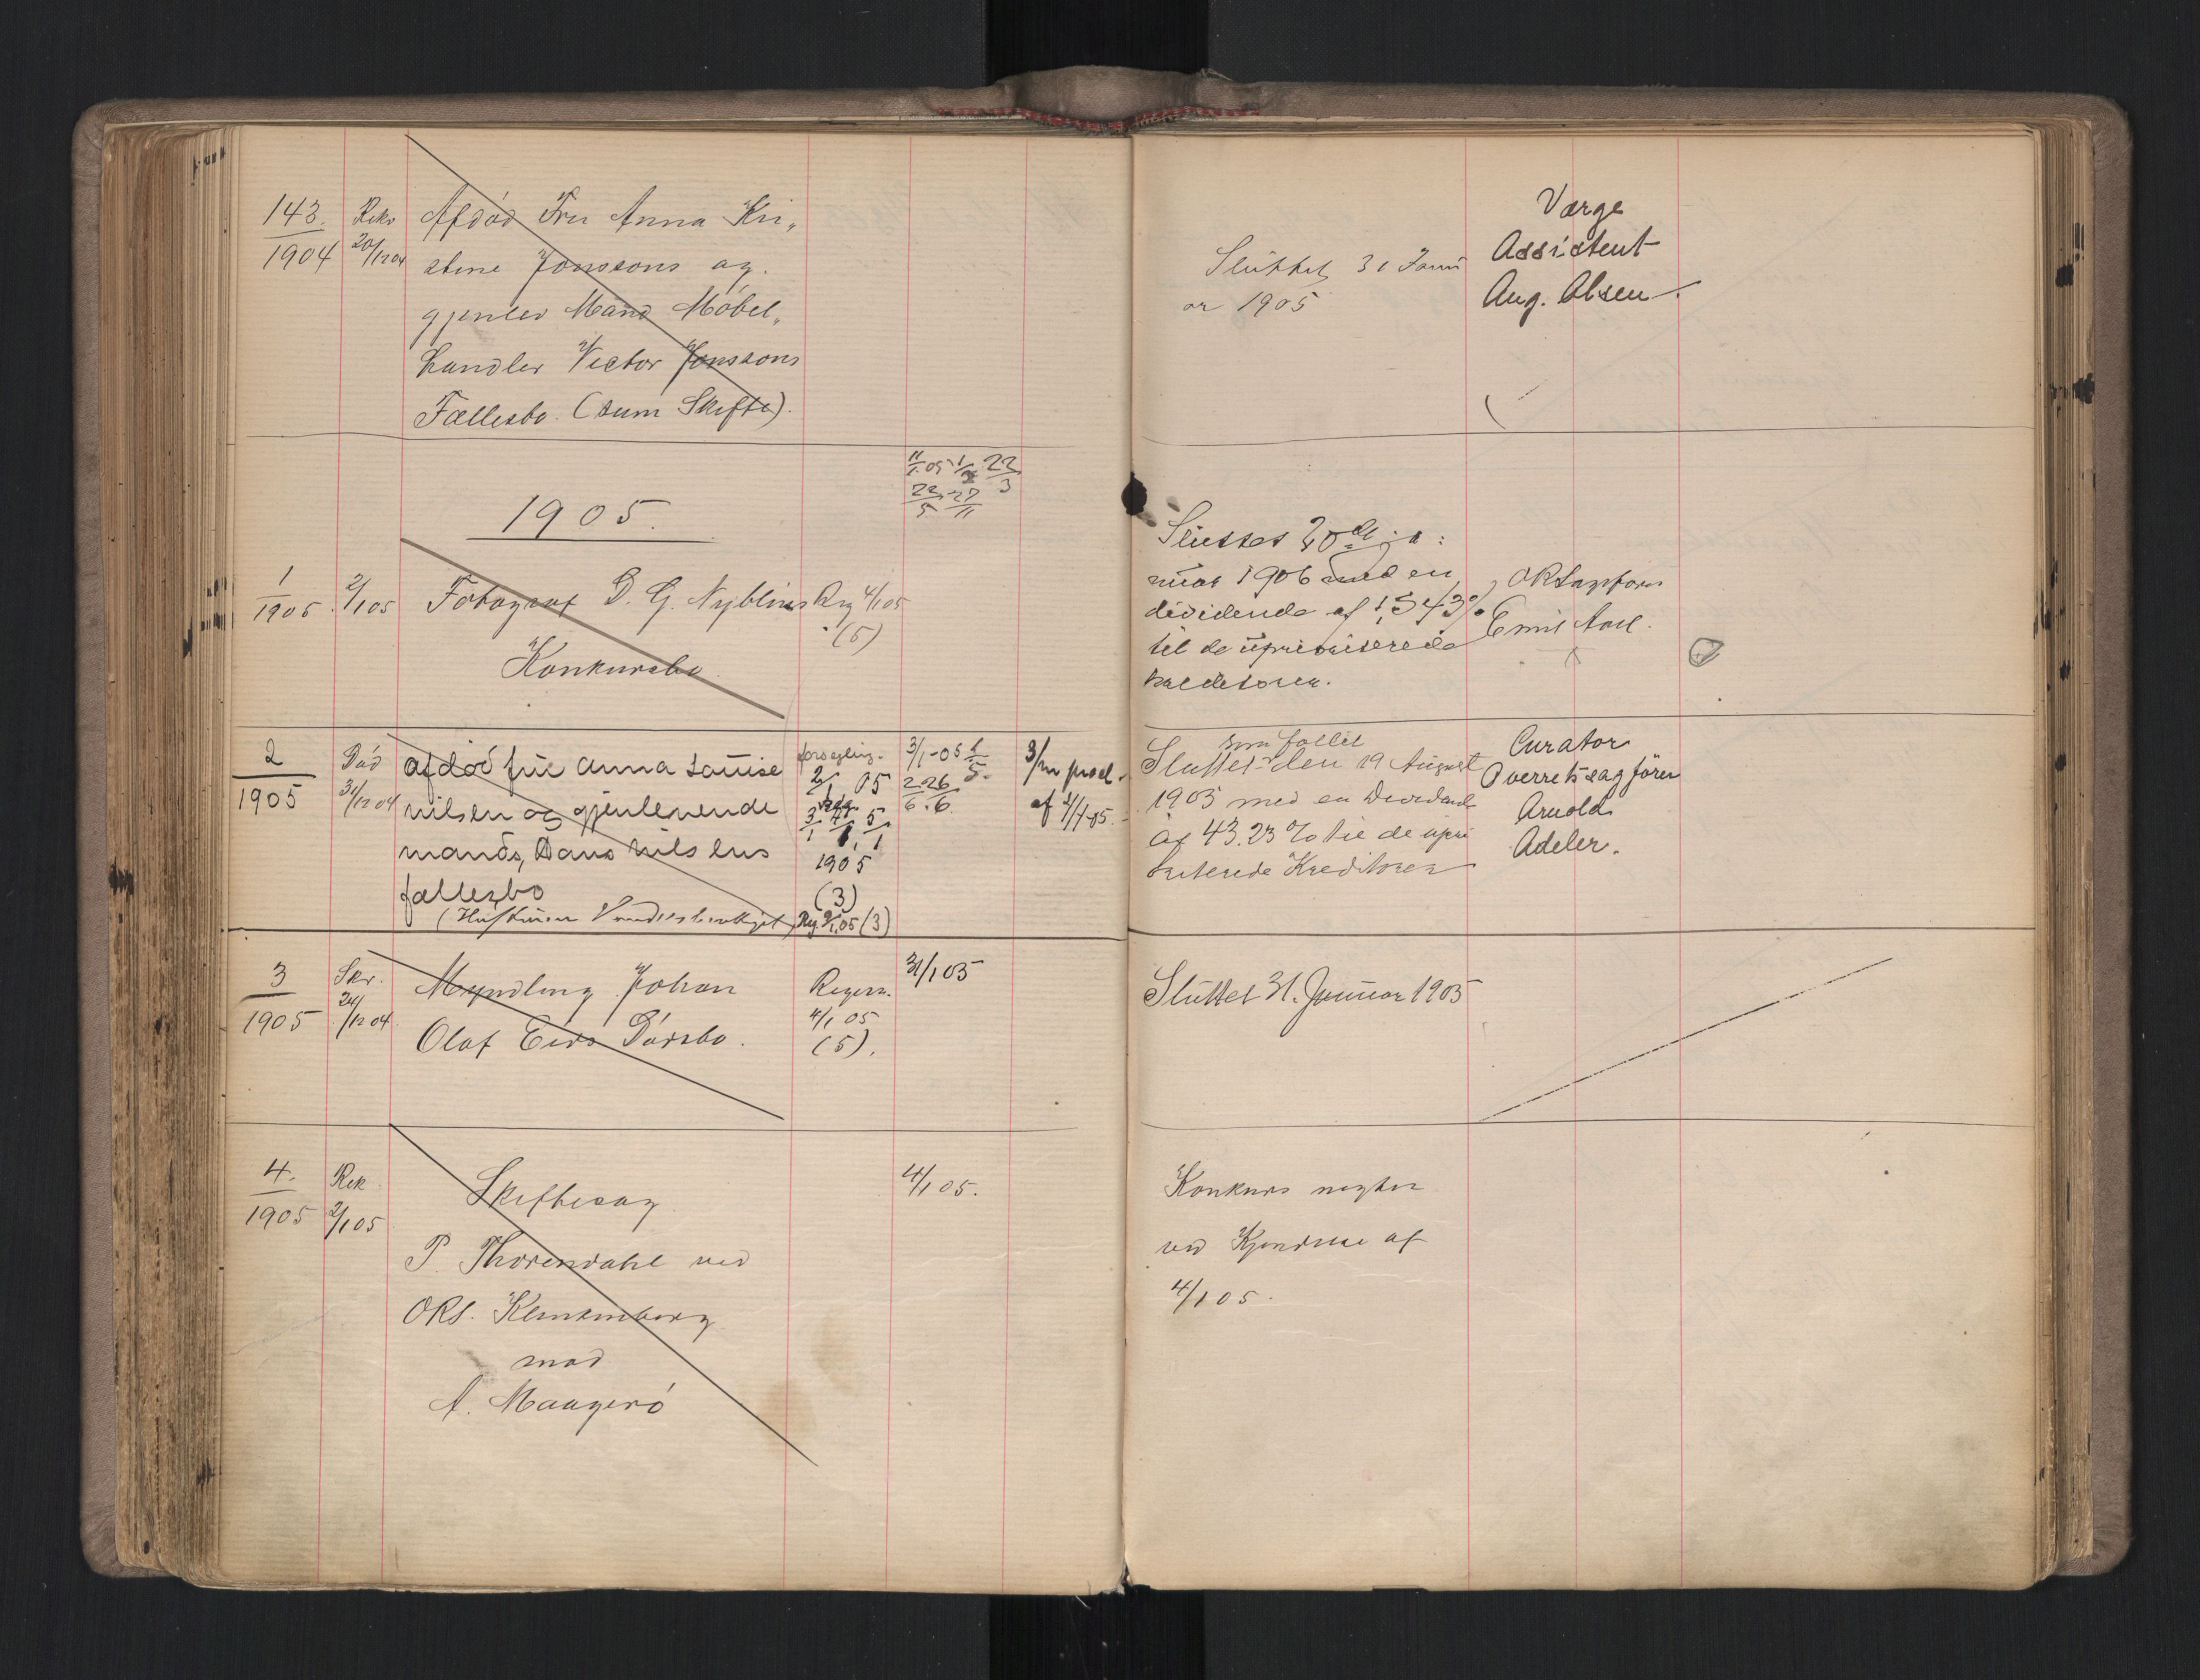 143.
1904
Rekv
20/12 04
Afdød Fru Anna Kri„
stine Jonssons og
gjenlev Mand Møbel„
handler Victor Jonssons
Fællesbo. (sum Skifte).
Sluttet 31 Janu
ar 1905
Værge
Assistent
Aug. Olsen
11/1 05 1/2 22/3
22/5 27/11
1905.
1
1905
2/1 05
Fotograf D. G. Nyblins
Konkursbo
Reg 4/1 05
(5)
Sluttet 20de ja:
nuar 1906 med en
dividende af 1,543%
til de upriviterede
kreditorer.
ORSagfører
Emil Aas
2
1905
Død
31/12 04
afdød frue Anna Louise
nilsen og gjenlevende
mands, Hans nilsens
fællesbo
forsegling
2/1 05
Reg
3/1 4/1 5/1
1905
(3)
Reg. 9/1 05 (3)
3/1-05 1/5
22/6 26/6
af 4/1-05.
som fallit
Sluttet den 19 August
1905 med en Dividende
af 43.23 % til de upri
oriterede Kreditorer
Curator
Overretssagfører
Arnold
Adeler.
3
1905
Skr.
24/12 04
Myndling Johan
Olaf Eids Dødsbo.
Regist.
4/1 05
(5).
31/1 05
Sluttet 31. Januar 1905
4.
1905
Rek
2/1 05
Skiftesag
P. Thorendahl ved
ORS. Klinkenberg
mod
A. Maagerø
4/1 05.
Konkurs negtet
ved Kjendelse af
4/1 05.